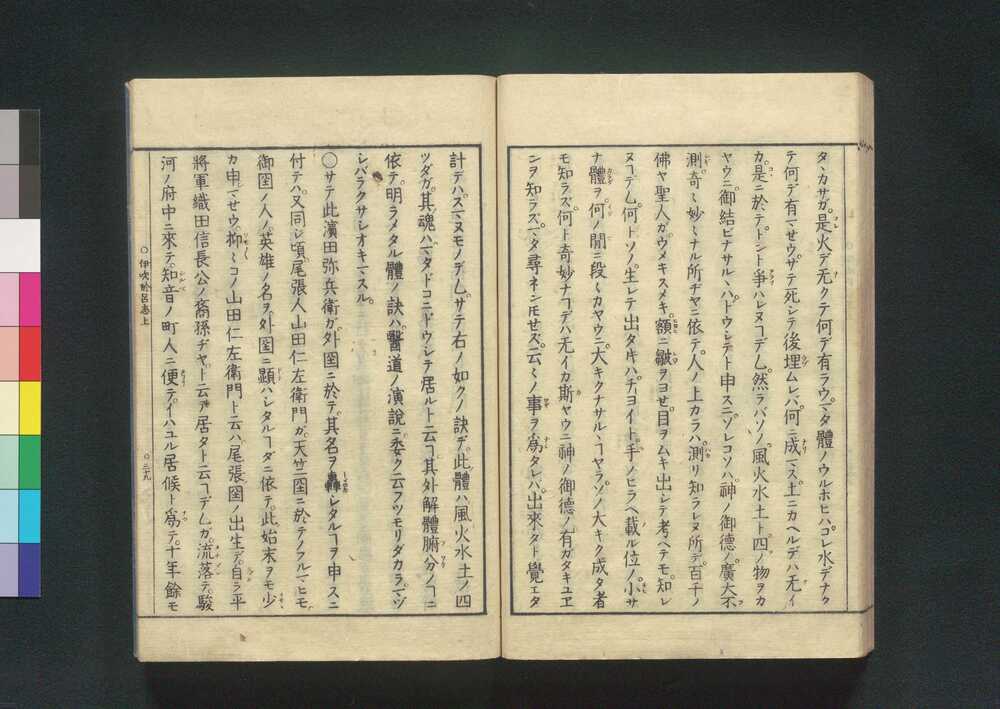 タヽカサガ是火デ无クテ何デ有ラウマタ體ノウルホヒハコレ水デナク
テ何デ有マせウザテ死シテ後埋ムレバ何ニ成マス土ニカヘルデハ无イ
カ是ニ於テトント爭ハレヌヿデム然ラバソノ風火水土ト四ノ物ヲカ
ヤウニ御結ビナサルヽハドウシデト申スニソレコソハ神ノ御德ノ廣大不
測奇〻妙〻ナル所ヂヤニ依テ人ノ上カラハ測リ知ラレヌ所デ百千ノ
佛ヤ聖人ガウメキスメキ額ニ皺ヲヨせ目ヲムキ出シテ考ヘテモ知レ
ヌヿテム何トソノ生レテ出タキハチヨイト手ノヒラヘ載ル位ノ小サ
ナ體ヲ何ノ間ニ段〻カヤウニ大キクナサルヽヿヤラソノ大キク成タ者
モ知ラズ何ト奇妙ナヿデハ无イカ斯ヤウニ神ノ御德ノ有ガタキユヱ
ンヲ知ラズマタ尋ネンモせズ云〻ノ事ヲ爲タレバ出來タト覺エタ
計デハスマヌモノデムザテ右ノ如クノ訣デ此體ハ風火水土ノ四
ツダガ其魂ハマタドコニドウシテ居ルト云フヿ其外解體腑分ノヿニ
依テ明ラメタル體ノ訣ハ醫道ノ演說ニ委ク云フツモリダカラマヅ
シバラクサシオキマスル
〇サテ此濱田弥兵衛ガ外國ニ於テ其名ヲ轟シタルヿヲ申スニ
付テハ又同シ頃尾張人山田仁左衛門ガ天竺國ニ於テノフルマヒモ
御國ノ人ノ英雄ノ名ヲ外國ニ顯ハレタルヿダニ依テ此始末ヲモ少
カ申マせウ抑〻コノ山田仁左衛門ト云ハ尾張國ノ出生デ自ラ平
將軍織田信長公ノ裔孫ヂヤト云テ居タト云ヿデムガ流落テ駿
河ノ府中ニ來テ知音ノ町人ニ便テイハユル居候ト爲テ十年餘モ
〇伊吹於呂志上
〇二十九